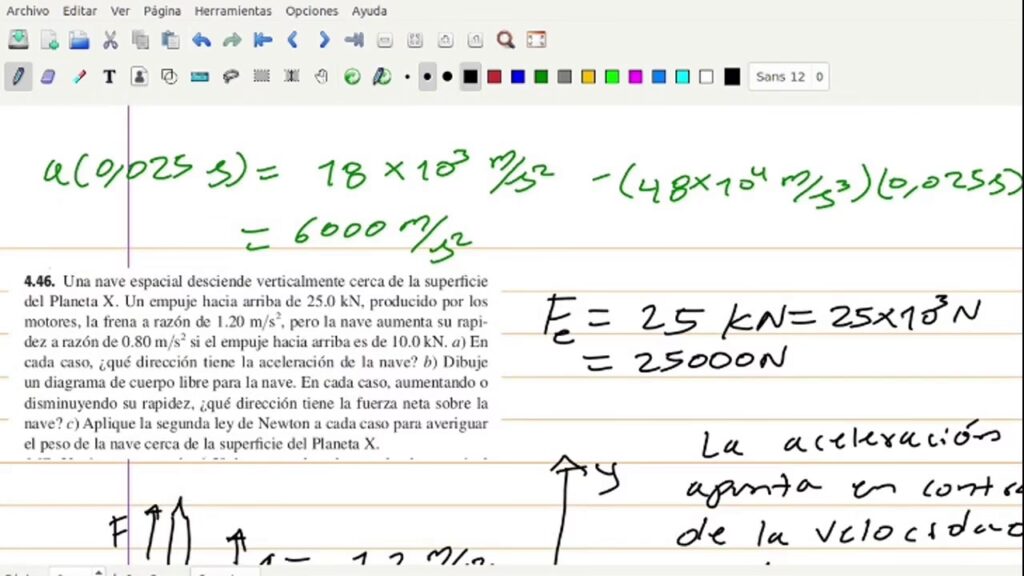 Archivo Editar Ver Página Herramientas Opciones Ayuda
T
Sans 12 0
a(0,025 s) = 18 × 10³ m/s² - (48×10⁴ m/s³)(0,025s)
= 6000 m/s²
4.46. Una nave espacial desciende verticalmente cerca de la superficie
del Planeta X. Un empuje hacia arriba de 25.0 kN, producido por los
motores, la frena a razón de 1.20 m/s², pero la nave aumenta su rapi-
dez a razón de 0.80 m/s² si el empuje hacia arriba es de 10.0 kN. a) En
cada caso, ¿qué dirección tiene la aceleración de la nave? b) Dibuje
un diagrama de cuerpo libre para la nave. En cada caso, aumentando o
disminuyendo su rapidez, ¿qué dirección tiene la fuerza neta sobre la
nave? c) Aplique la segunda ley de Newton a cada caso para averiguar
el peso de la nave cerca de la superficie del Planeta X.
Fe = 25 kN = 25×10³ N
= 25000N
La aceleración
apunta en contra
de la velocidad
y
F
a = 1,2 m/s²